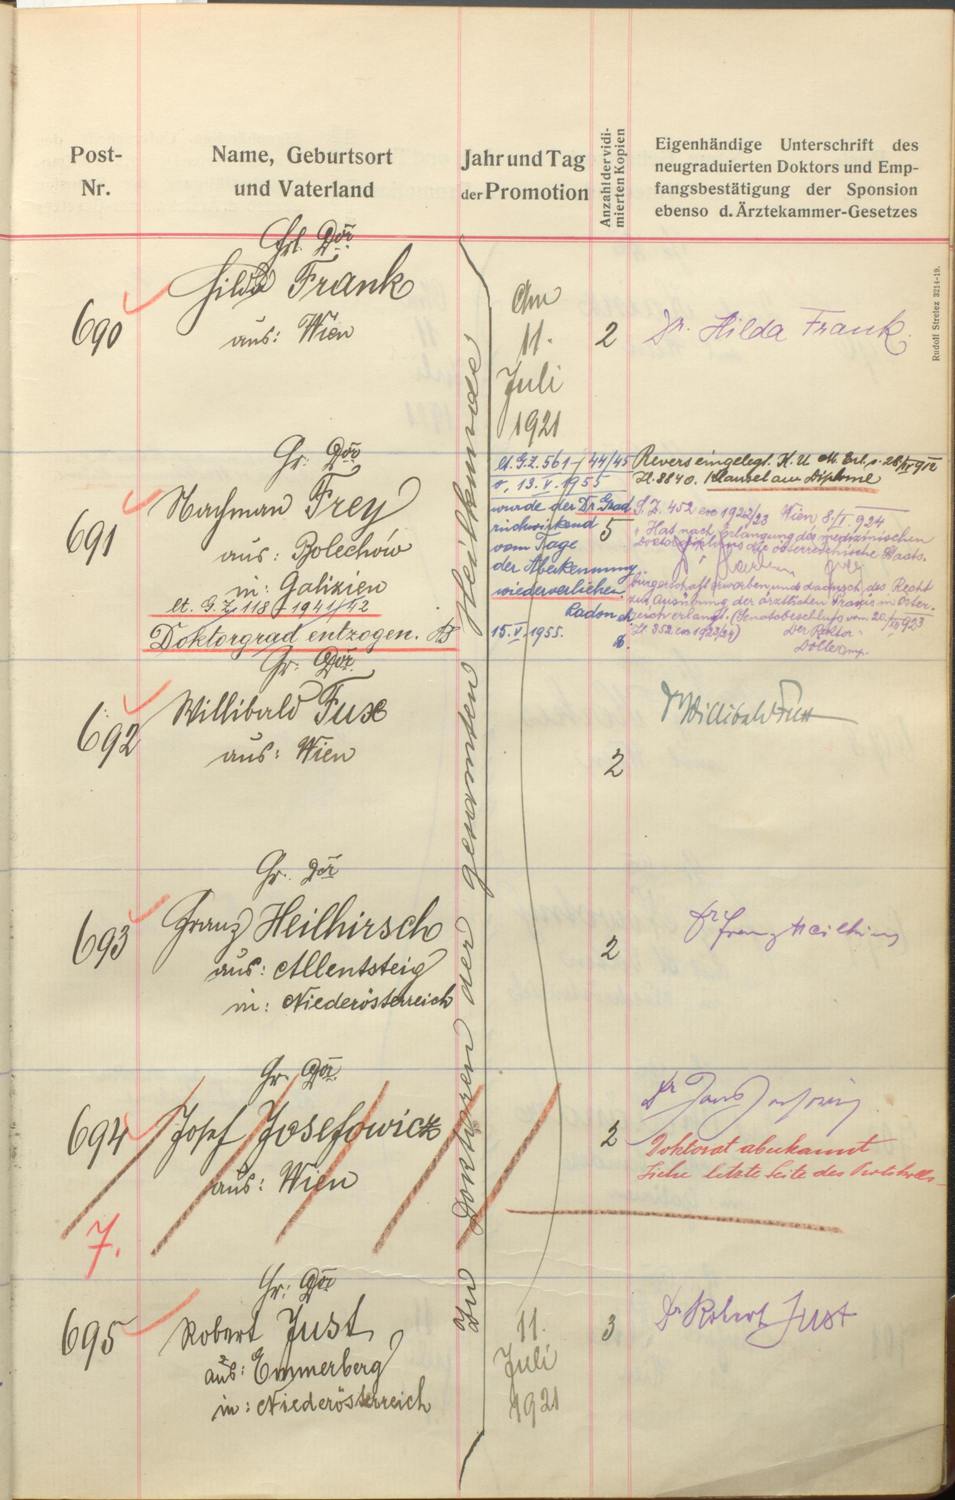 Post-
Nr.
Name, Geburtsort
und Vaterland
Jahr und Tag
der Promotion
Anzahl der vidi-
mierten Kopien
Eigenhändige Unterschrift des
neugraduierten Doktors und Emp-
fangsbestätigung der Sponsion
ebenso d. Ärztekammer-Gesetzes
Rudolf Stretez 3214-19.
Zu Doktoren der gesamten Heilkunde
Frl. Dor
690
Hilda Frank
aus: Wien
Am
11.
Juli
1921
2
Dr. Hilda Frank
Hr. Dor
691
Nachman Frey
aus: Bolechów
in: Galizien
lt. G.Z. 118 - 1941/42
Doktorgrad entzogen.
lt. G.Z. 561 / 44/45
v. 13. V. 1955
wurde der Dr. Grad
rückwirkend
vom Tage
der Aberkennung
wiederverliehen
Radon eh
15. V. 1955.
5
Revers eingelegt. K. U. M. Erl. v. 28/ 912
Zl. 8840. Klausel am Diplome
G. Z. 452 ex 1922/23 Wien, 8/I. 924
Hat nach Erlangung des medizinischen
Doktordiploms die österreichische Staats-
bürgerschaft erworben und dadurch das Recht
zur Ausübung der ärztlichen Praxis in Öster-
reich erlangt. (Senatsbeschluss vom 20/ 923
Zl 352 ex 1923/24)
Der Rektor:
Hr. Dor
692
Willibald Fux
aus: Wien
2
Dr Willibald Fux
Hr. Dor
693
Franz Heilhirsch
aus: Allentsteig
in: Niederösterreich
2
Dr Franz Heilhirsch
Hr. Dor
694
Josef Josefowicz
aus: Wien
7.
2
Dr
Doktorat aberkannt
Siehe letzte Seite des Protokolls
Hr. Dor
695
Robert Just
aus: Emmerberg
in: Niederösterreich
11.
Juli
1921
3
Dr Robert Just